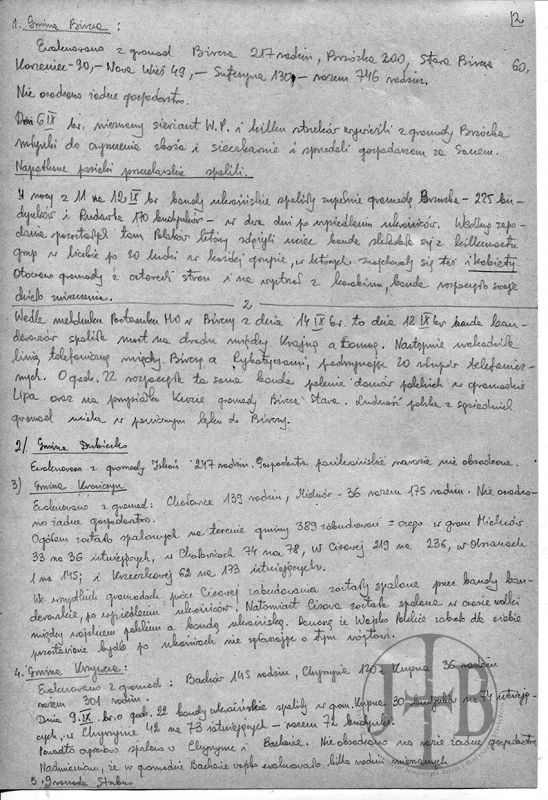 2
1. Gmina Bircza :
Ewakuowano z gromad Bircza 217 rodzin, Brzózka 200, Stara Bircza 60,
Korzeniec - 90, - Nowa Wieś 49, - Sufczyna 130, - razem 746 rodzin.
Nie osadzono żadne gospodarstwo.
Dnia 6 IX br. nieznany sierżant W.P. i kilku strzelców wywieźli z gromady Brzózka
młynki do czyszczenia zboża i sieczkarnie i sprzedali gospodarzom za Sanem.
Napotkane pasieki pszczelarskie spalili.
W nocy z 11 na 12 IX br bandy ukraińskie spaliły zupełnie gromadę Brzuska - 225 bu-
dynków i Rudawka 170 budynków - w dwa dni po wysiedleniu ukraińców. Według zapo-
dania pozostałych tam Polaków którzy zdążyli uciec banda składała się z kilkunastu
grup w liczbie po 20 ludzi w każdej grupie, w których znajdowały się też i kobiety
Otoczono gromady z czterech stron i na wystrzał z karabinu, banda rozpoczęła swoje
dzieło zniszczenia.
2
Wedle meldunku Posterunku MO w Birczy z dnia 14 IX br. to dnia 12 IX br banda ban-
derowców spaliła most na drodze między Krajną a Łomną. Następnie uszkodziła
linię telefoniczną między Birczą a Rybotyczami, podrzynając 20 słupów telefonicz-
nych. O godz. 22 rozpoczęła ta sama banda palenie domów polskich w gromadzie
Lipa oraz na przysiółku Kurze gromady Bircza Stara. Ludność polska z sąsiednich
gromad ucieka w panicznym lęku do Birczy.
2/ Gmina Dubiecko
Ewakuowano z gromady Iskań 247 rodzin. Gospodarstwa poukraińskie narazie nie obsadzone.
3) Gmina Krasiczyn
Ewakuowano z gromad: Chołowice 139 rodzin, Mielnów - 36 razem 175 rodzin. Nie osadzo-
no żadne gospodarstwo.
Ogółem zostało spalonych na terenie gminy 389 zabudowań = czego w grom Mielnów
33 na 36 istniejących, w Chołowicach 74 na 78, w Cisowej 219 na 236, w Olszanach
1 na 145; i Krzeczkowej 62 na 173 istniejących.
We wszystkich gromadach prócz Cisowej zabudowania zostały spalone przez bandy ban-
derowskie, po wysiedleniu ukraińców. Natomiast Cisowa została spalona w czasie walki
między wojskiem polskim a bandą ukraińską. Donoszą że Wojsko Polskie zabrało dla siebie
pozostawione bydło po ukraińcach nie zgłaszając o tym wójtowi.
4. Gmina Krzywcza:
Ewakuowano z gromad : Bachów 145 rodzin, Chyrzyna 120, Kupna 36 rodzin
razem 301 rodzin.
Dnia 9.IX br. o godz. 22 bandy ukraińskie spaliły w grom. Kupna 30 budynków na 74 istnieją-
cych, w Chyrzynie 42 na 73 istniejących - razem 72 budynki.
Ponadto ogniowo spalono w Chyrzynie i Bachowie. Nie obsadzono na razie żadne gospodarstwo
Nadmieniam, że w gromadzie Bachowie wojsko ewakuowało kilka rodzin mieszanych
5. Gromada Stubno
J B